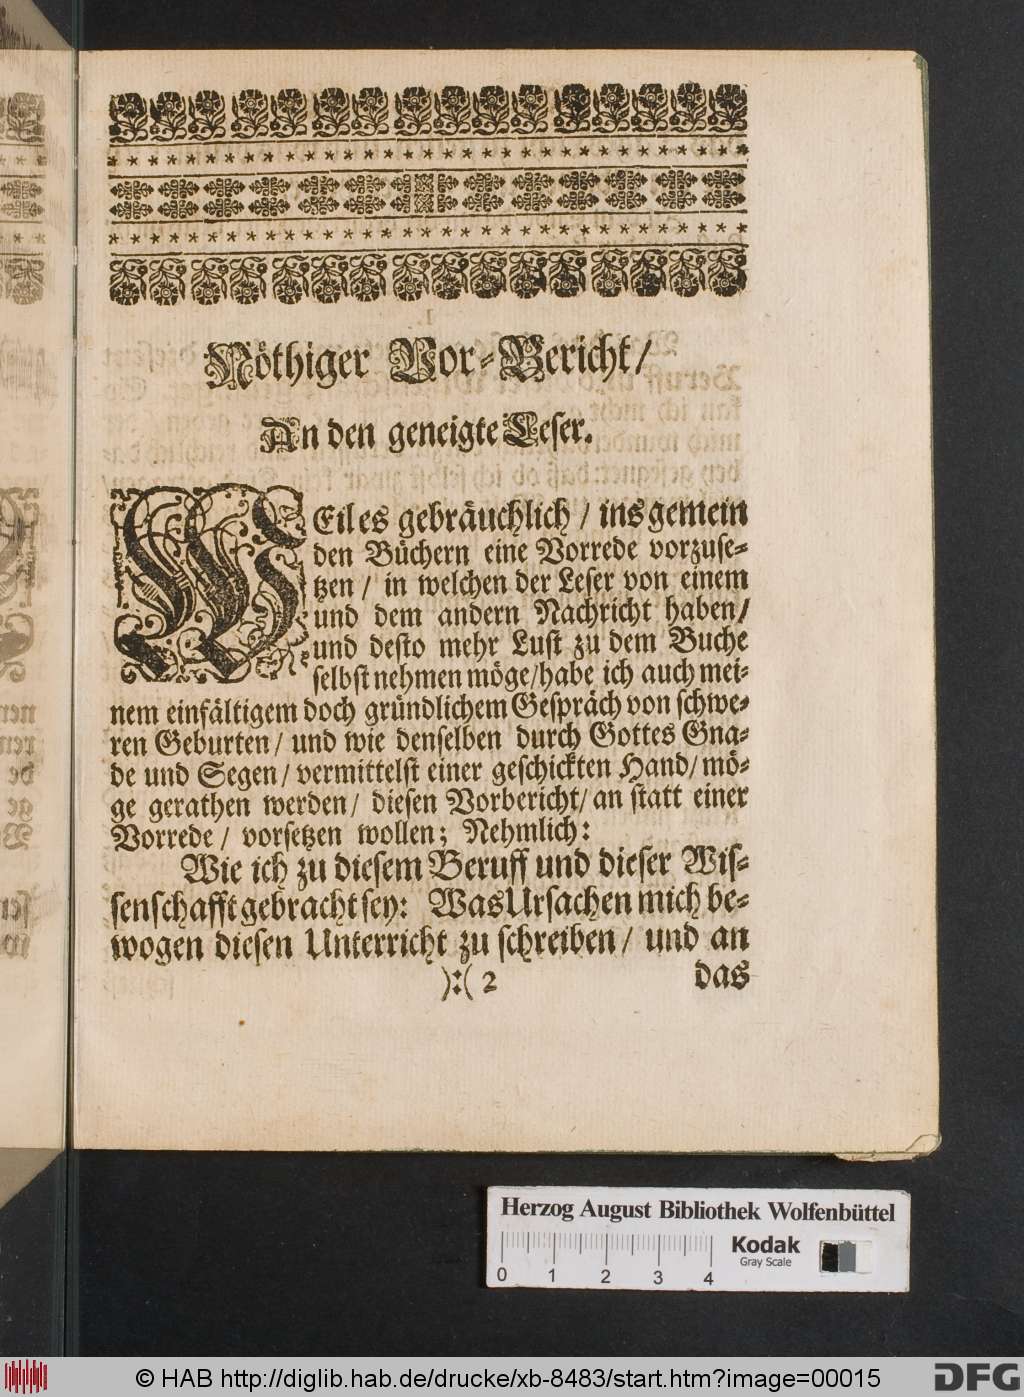 Nöthiger Vor-Bericht/
An den geneigte Leser.
WEil es gebräuchlich / ins gemein
den Büchern eine Vorrede vorzuse-
tzen / in welchen der Leser von einem
und dem andern Nachricht haben/
und desto mehr Lust zu dem Buche
selbst nehmen möge/habe ich auch mei-
nem einfältigem doch gründlichem Gespräch von schwe-
ren Geburten / und wie denselben durch Gottes Gna-
de und Segen / vermittelst einer geschickten Hand / mö-
ge gerathen werden / diesen Vorbericht / an statt einer
Vorrede / vorsetzen wollen; Nehmlich:
Wie ich zu diesem Beruff und dieser Wis-
senschafft gebracht sey: Was Ursachen mich be-
wogen diesen Unterricht zu schreiben / und an
):( 2 das
Herzog August Bibliothek Wolfenbüttel
Kodak
Gray Scale
0 1 2 3 4
© HAB http://diglib.hab.de/drucke/xb-8483/start.htm?image=00015
DFG